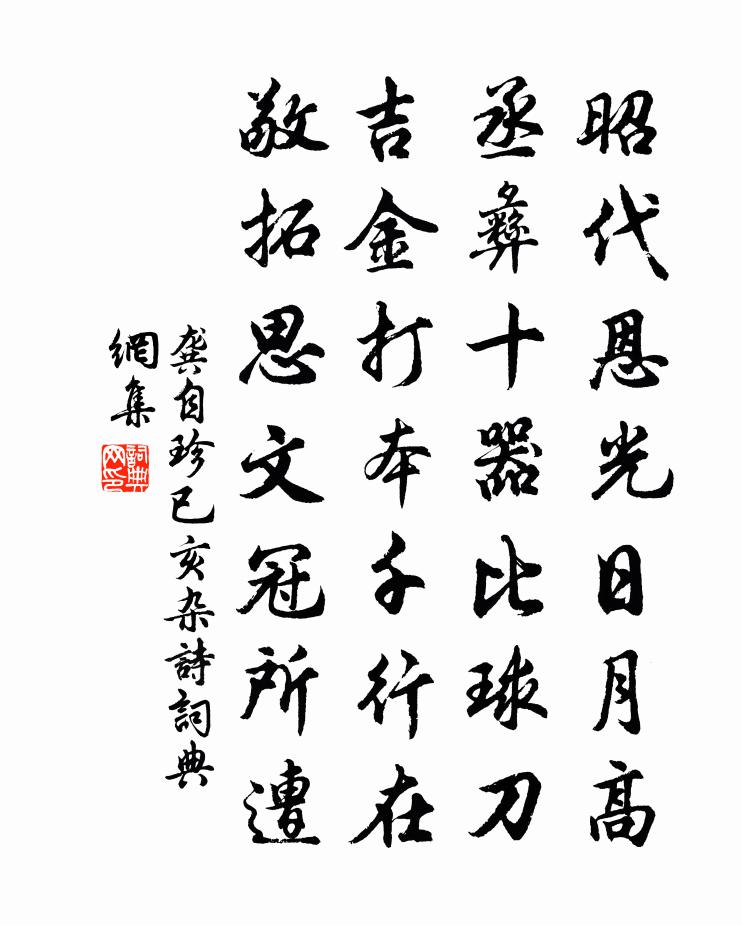 昭代恩光日月高
丞彝十器比球刀
吉金打本千行在
敬拓思文冠所遭
龔自珍己亥杂詩詞典
網集
詞典
网印